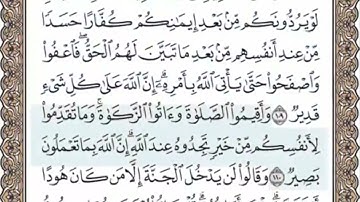 لَوْ يَرُدُّونَكُم مِّنۢ بَعْدِ إِيمَٰنِكُمْ كُفَّارًا حَسَدًا
مِّنْ عِندِ أَنفُسِهِم مِّنۢ بَعْدِ مَا تَبَيَّنَ لَهُمُ ٱلْحَقُّ ۖ فَٱعْفُوا۟
وَٱصْفَحُوا۟ حَتَّىٰ يَأْتِىَ ٱللَّهُ بِأَمْرِهِۦٓ ۗ إِنَّ ٱللَّهَ عَلَىٰ كُلِّ شَىْءٍ
قَدِيرٌ ١٠٩ وَأَقِيمُوا۟ ٱلصَّلَوٰةَ وَءَاتُوا۟ ٱلزَّكَوٰةَ ۚ وَمَا تُقَدِّمُوا۟
لِأَنفُسِكُم مِّنْ خَيْرٍ تَجِدُوهُ عِندَ ٱللَّهِ ۗ إِنَّ ٱللَّهَ بِمَا تَعْمَلُونَ
بَصِيرٌ ١١٠ وَقَالُوا۟ لَن يَدْخُلَ ٱلْجَنَّةَ إِلَّا مَن كَانَ هُودًا